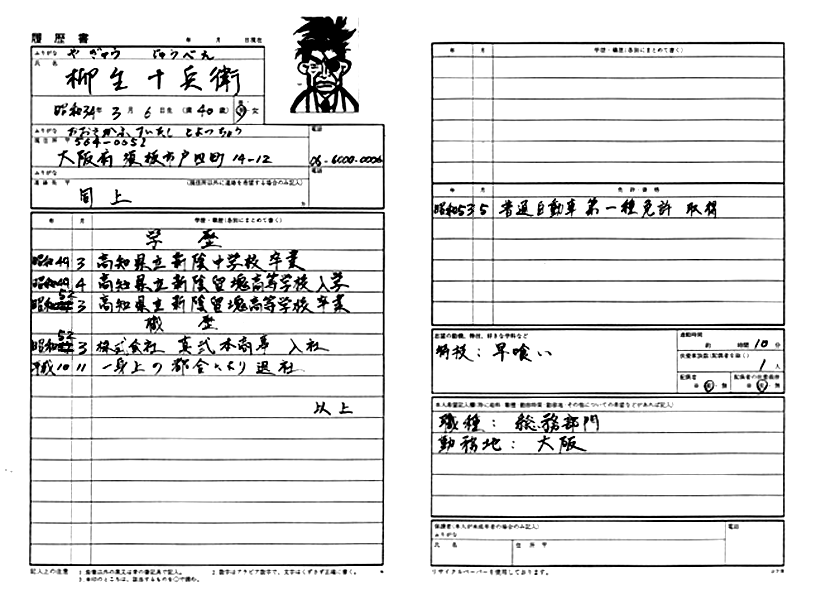 履歴書
年 月 日現在
ふりがな やぎゅう じゅうべえ
氏名
柳生十兵衛
昭和34年 3月 6日生 (満 40歳) 男・女
ふりがな おおさかふ すいたし とよつちょう
現住所 〒564-0052
電話
06-6000-0006
ふりがな
電話
連絡先 〒 (現住所以外に連絡を希望する場合のみ記入)
同上
年 月 学歴・職歴(各別にまとめて書く)
学歴
昭和49 3 高知県立新陰中学校卒業
昭和49 4 高知県立新陰留塊高等学校入学
昭和52 3 高知県立新陰留塊高等学校卒業
職歴
昭和52 3 株式会社 真弐本商事 入社
平成10 11 一身上の都合により退社
以上
記入上の注意 1.鉛筆以外の黒又は青の筆記具で記入。 2.数字はアラビア数字で、文字はくずさず正確に書く。
3.※印のところは、該当するものを○で囲む。
年 月 学歴・職歴(各別にまとめて書く)
年 月 免許・資格
昭和53 5 普通自動車第一種免許 取得
志望の動機、特技、好きな学科など
特技:早喰い
通勤時間
約 時間 10分
扶養家族数(配偶者を除く)
1人
配偶者
※ 有・無
配偶者の扶養義務
※ 有・無
本人希望記入欄(特に給料・職種・勤務時間・勤務地・その他についての希望などがあれば記入)
職種:総務部門
勤務地:大阪
保護者(本人が未成年者の場合のみ記入)
ふりがな
電話
氏名 住所 〒
リサイクルペーパーを使用しております。